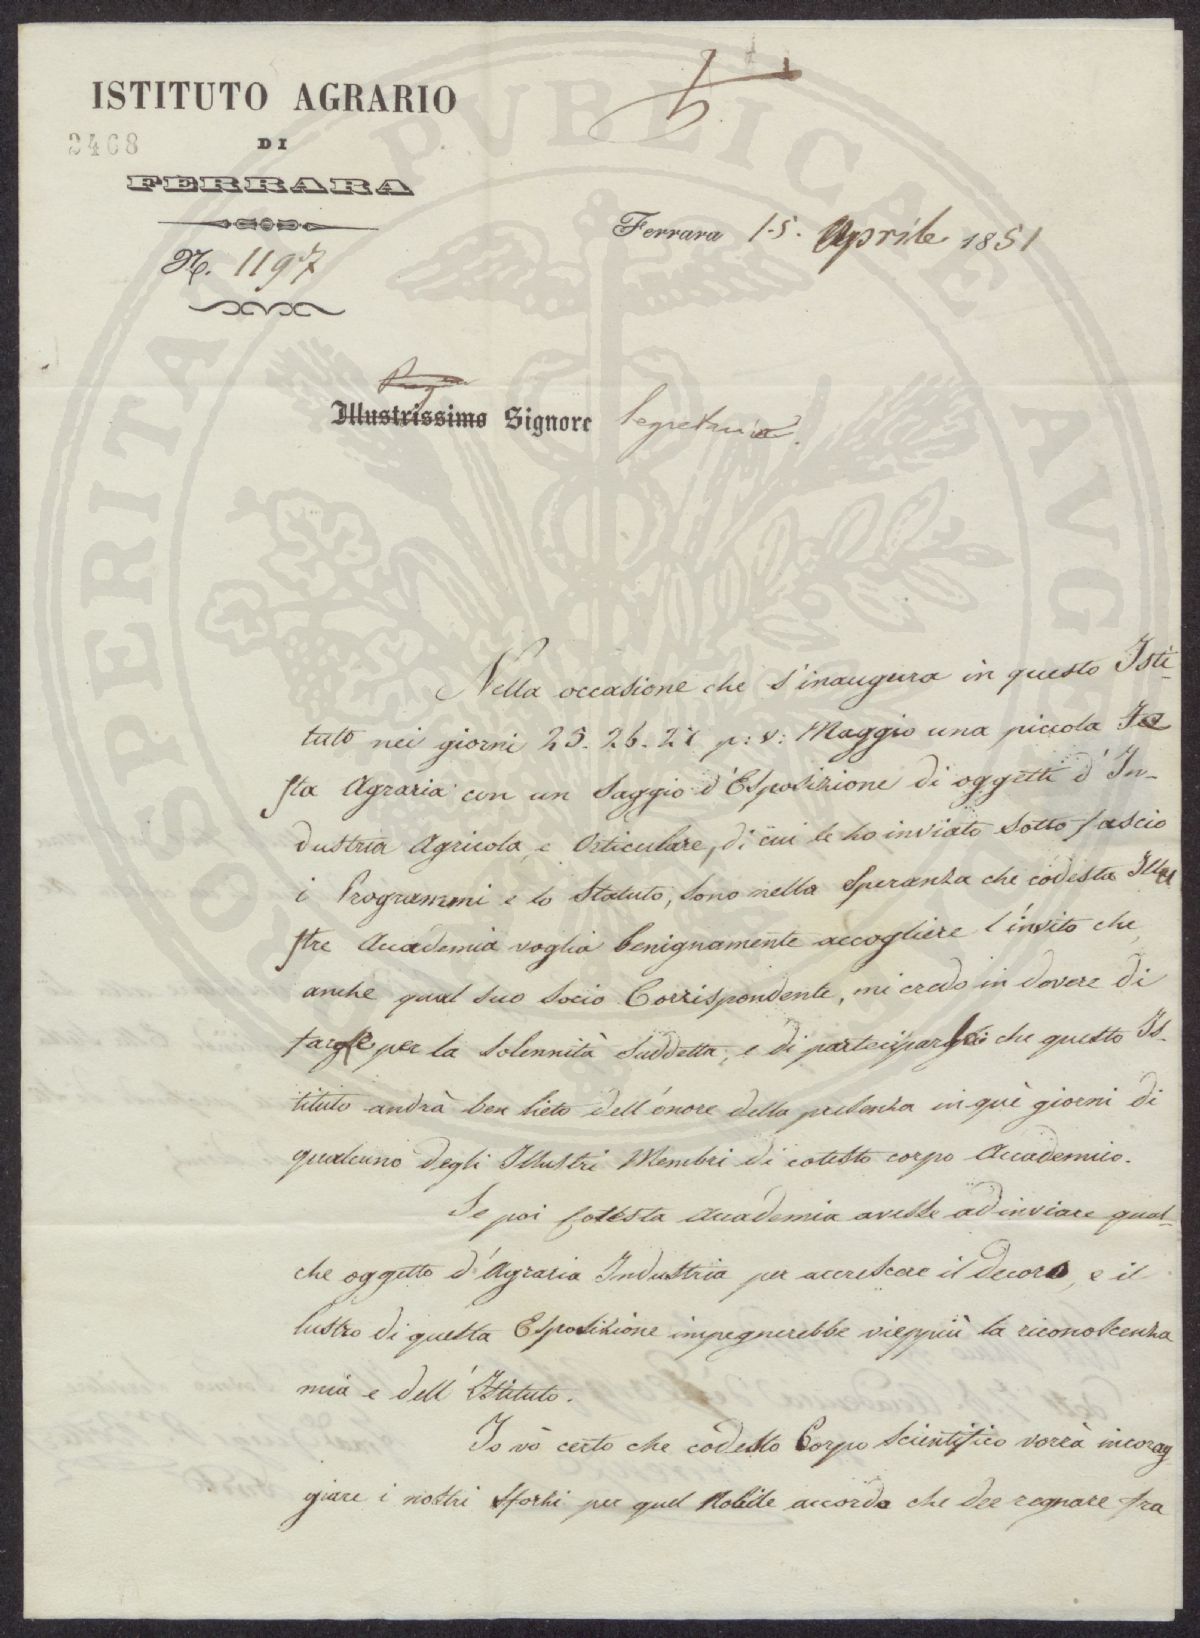 ISTITUTO AGRARIO
2468
DI
FERRARA
N. 1197
Ferrara 15. Aprile 1851
Illustrissimo Signore Segretario.
Nella occasione che s'inaugura in questo Isti-
tuto nei giorni 25. 26. 27 p: v: Maggio una piccola Fe
sta Agraria con un Saggio d'Esposizione di oggetti d'In-
dustria Agricola, e Orticulare, di cui le ho inviato sotto fascio
i Programmi e lo Statuto, sono nella Speranza che codesta Illu
stre Accademia voglia benignamente accogliere l'invito che,
anche qual suo Socio Corrispondente, mi credo in dovere di
farle per la Solennità Suddetta, e di parteciparle che questo Is-
tituto andrà ben lieto dell'onore della presenza in què giorni di
qualcuno degli Illustri Membri di cotesto corpo Accademico.
Se poi Cotesta Accademia avesse ad inviare qual-
che oggetto d'Agraria Industria per accrescere il decoro, e il
lustro di questa Esposizione impegnerebbe vieppiù la riconoscenza
mia e dell'Istituto.
Io vò certo che codesto Corpo Scientifico vorrà incorag
giare i nostri sforzi per quel Nobile accordo che dee regnare fra
PROSPERITATI PVBLICAE AVGENDAE